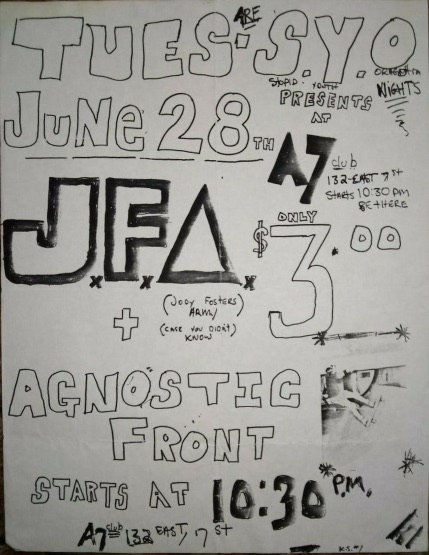 TUES. ARE S.Y.O
STUPID YOUTH NIGHTS
PRESENTS
AT
JUNE 28TH
A7 club
132 EAST 7 ST
STARTS 10:30 PM
BE THERE
J.F.A.
ONLY
$3.00
+ (JODY FOSTERS
ARMY)
(CASE YOU DIDN'T
KNOW)
AGNOSTIC
FRONT
STARTS AT 10:30 P.M.
A7 club 132 EAST, 7 ST